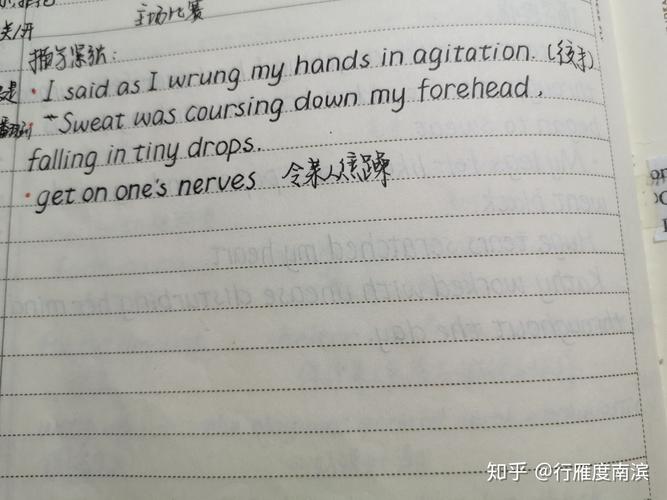 主场比赛
关/开
描写紧张:
·I said as I wrung my hands in agitation. (绞手)
"Sweat was coursing down my forehead,
falling in tiny drops.
·get on one's nerves 令某人焦躁
知乎 @行雁度南滨